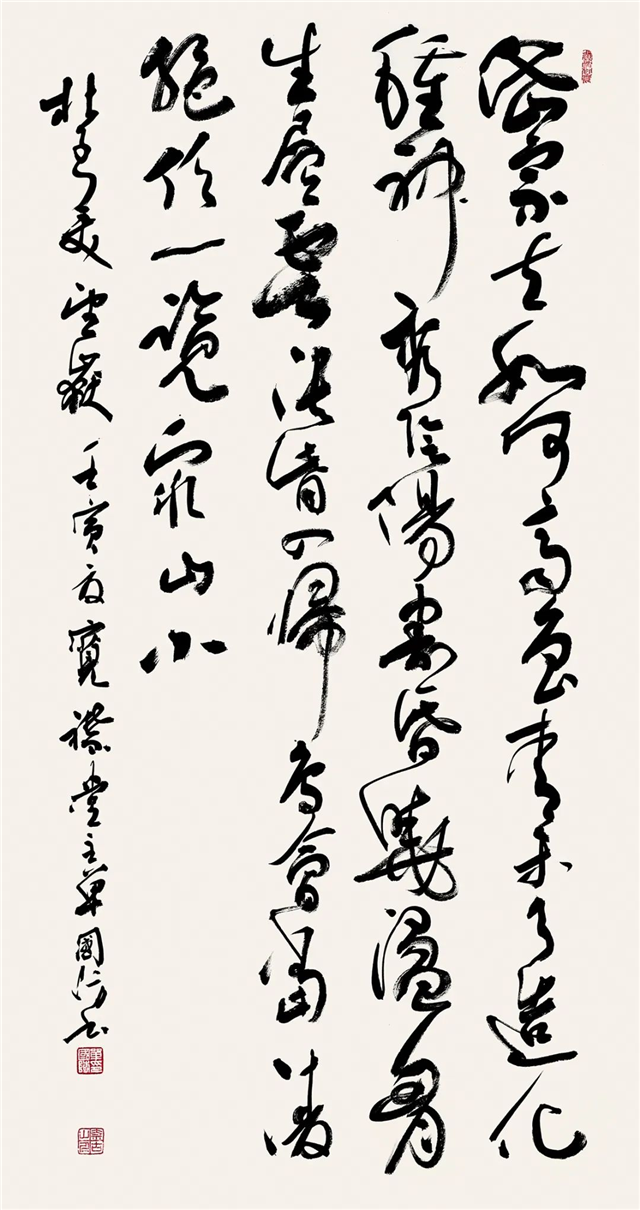 岱宗夫如何齊魯青未了造化
鍾神秀陰陽割昏曉盪胷
生層雲決眥入歸鳥會當凌
絕頂一覽眾山小
杜子美望嶽壬寅夏寬襟堂主單國防書